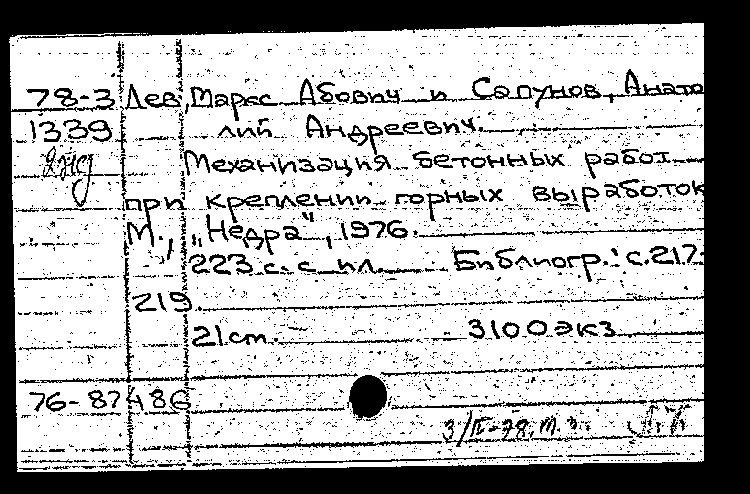 78-3 Лев, Маркс Абович и Сапунов, Анато
1339 лий Андреевич.
2 экз Механизация бетонных работ
при креплении горных выработок
М., „Недра", 1976.
223 с. с ил. Библиогр.: с.217-
219.
21 cm. 3100 экз
76-87486
3/II-78.